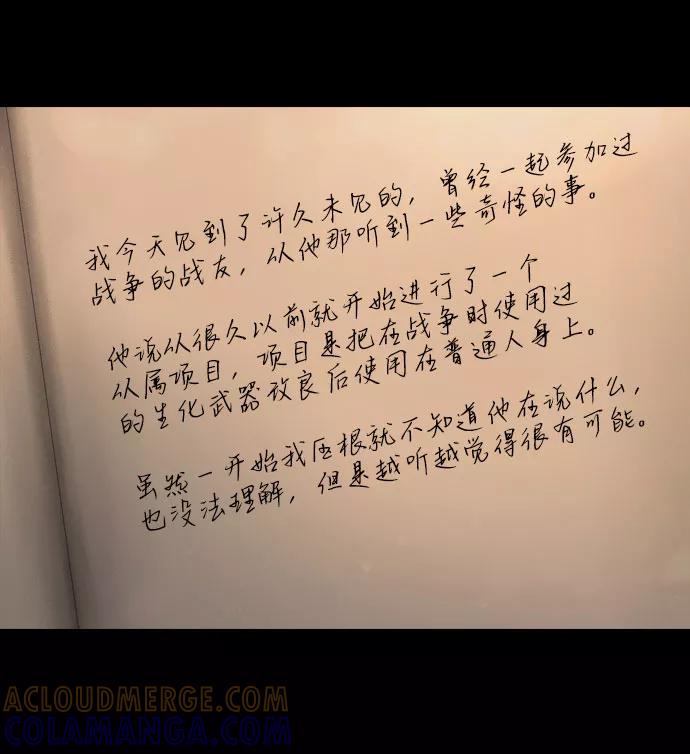 我今天见到了许久未见的，曾经一起参加过
战争的战友，从他那听到一些奇怪的事。
他说从很久以前就开始进行了一个
从属项目，项目是把在战争时使用过
的生化武器改良后使用在普通人身上。
虽然一开始我压根就不知道他在说什么，
也没法理解，但是越听越觉得很有可能。
ACLOUDMERGE.COM
COLAMANGA.COM